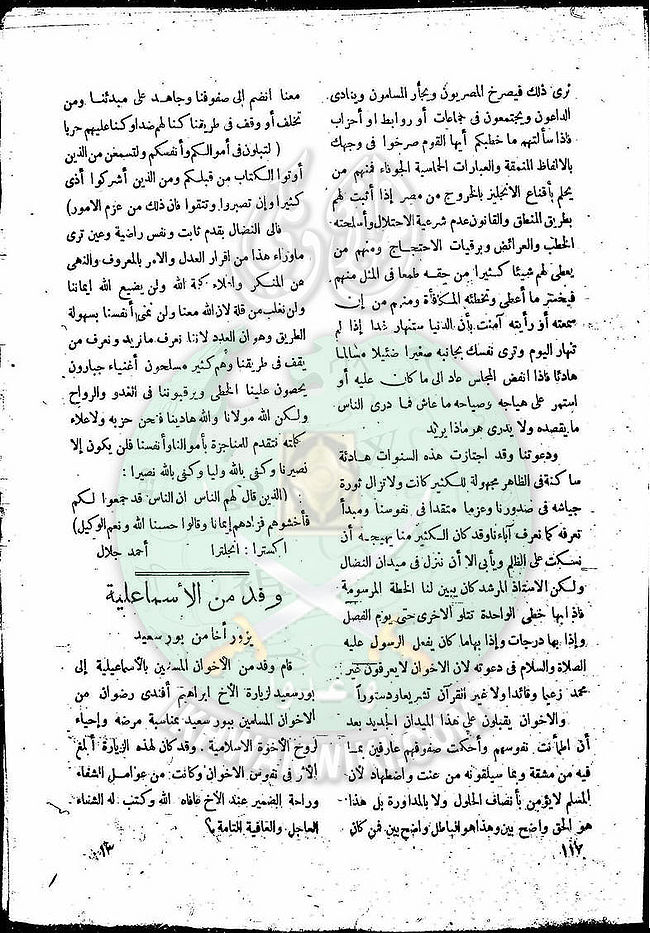 نرى ذلك فيصرخ المصريون ويجأر المسلمون وينادى
الداعون ويجتمعون فى جماعات أو روابط او أحزاب
فاذا سألتهم ما خطبكم أيها القوم صرخوا فى وجهك
بالالفاظ المنمقة والعبارات الحماسية الجوفاء فمنهم من
يحلم بأقناع الانجليز بالخروج من مصر إذا أثبت لهم
بطريق المنطق والقانون عدم شرعية الاحتلال وأسلحته
الخطب والعرائض وبرقيات الاحتجاج ومنهم من
يعطى لهم شيئا كثيرا من حقه طمعا فى المثل منهم
فيخسر ما أعطى وتخطئه المكافأة ومنهم من إن
سمعته أو رأيته آمنت بأن الدنيا ستنهار غدا إذا لم
تنهار اليوم وترى نفسك بجانبه صغيرا ضئيلا مسالما
هادئا فاذا انفض المجلس عاد الى ما كان عليه أو
استمر على هياجه وصياحه ما عاش فما درى الناس
ما يقصده ولا يدرى هو ماذا يريد
ودعوتنا وقد اجتازت هذه السنوات هادئة
ساكنة فى الظاهر مجهولة للكثير كانت ولا تزال ثورة
جياشه فى صدورنا وعزما متقدا فى نفوسنا ومبدأ
نعرفه كما نعرف آباءنا وقد كان الكثير منا يهيجه أن
نسكت على الظلم ويأبى الا أن ننزل فى ميدان النضال
ولكن الاستاذ المرشد كان يبين لنا الخطة المرسومة
فاذا بها خطى الواحدة تتلو الاخرى حتى يوم الفصل
وإذا بها درجات وإذا بها ما كان يفعل الرسول عليه
الصلاة والسلام فى دعوته لان الاخوان لا يعرفون غير
محمد زعيما وقائدا ولا غير القرآن تشريعا ودستوراً
والاخوان يقبلون على هذا الميدان الجديد بعد
أن اطمأنت نفوسهم وأحكمت صفوفهم عارفين بما
فيه من مشقة وبما سيلقونه من عنت واضطهاد لأن
المسلم لا يؤمن بأنصاف الحلول ولا بالمداورة بل هذا
هو الحق واضح بين وهذا هو الباطل واضح بين فمن كان
معنا انضم الى صفوفنا وجاهد على مبدئنا ومن
تخلف أو وقف فى طريقنا كنا لهم ضدا وكنا عليهم حربا
( لتبلون فى أموالكم وأنفسكم ولتسمعن من الذين
أوتوا الكتاب من قبلكم ومن الذين أشركوا أذى
كثيرا وإن تصبروا وتتقوا فان ذلك من عزم الامور)
فالى النضال بقدم ثابت ونفس راضية وعين ترى
ماوراء هذا من إقرار العدل والامر بالمعروف والنهى
عن المنكر واعلاء كلمة الله ولن يضيع الله ايماننا
ولن نغلب من قلة لان الله معنا ولن نمنى أنفسنا بسهولة
الطريق وهوان العدد لاننا نعرف ما نريد ونعرف من
يقف فى طريقنا وهم كثير مسلحون أغنياء جبارون
يحصون علينا الخطى ويرقبوننا فى الغدو والرواح
ولكن الله مولانا والله هادينا فنحن حزبه ولاعلاء
كلمته نتقدم للمناجزة بأموالنا وأنفسنا فلن يكون إلا
نصيرنا وكفى بالله وليا وكفى بالله نصيرا :
: (الذين قال لهم الناس ان الناس قد جمعوا لكم
فأخشوهم فزادهم إيمانا وقالوا حسبنا الله ونعم الوكيل)
اكسترا : انجلترا أحمد جلال
وفد من الأسماعلية
يزور أخا من بورسعيد
قام وفد من الأخوان المسلمين بالأسماعيلية إلى
بورسعيد لزيارة الأخ ابراهيم أفندى رضوان من
الاخوان المسلمين ببورسعيد بمناسبة مرضه وإحياء
لروح الأخوة الاسلامية . وقد كان لهذه الزيارة أبلغ
الأثر فى نفوس الاخوان وكانت من عوامل الشفاء
وراحة الضمير عند الأخ عافاه الله وكتب له الشفاء
العاجل والعافية التامة ؟
١١٧
١٣